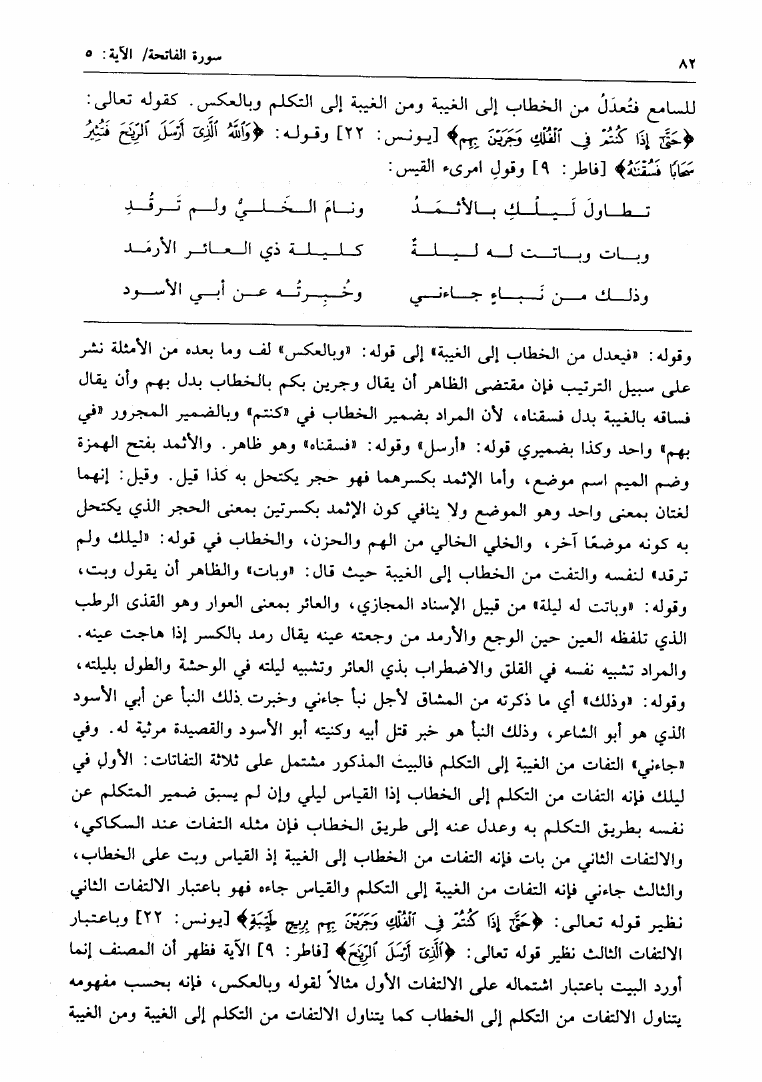 ٨٢
سورة الفاتحة/ الآية: ٥
للسامع فتُعدَلُ من الخطاب إلى الغيبة ومن الغيبة إلى التكلم وبالعكس. كقوله تعالى:
﴿حَتَّىٰٓ إِذَا كُنتُمْ فِى ٱلْفُلْكِ وَجَرَيْنَ بِهِم﴾ [يونس: ٢٢] وقوله: ﴿وَٱللَّهُ ٱلَّذِىٓ أَرْسَلَ ٱلرِّيَٰحَ فَتُثِيرُ
سَحَابًا فَسُقْنَٰهُ﴾ [فاطر: ٩] وقولِ امرىء القيس:
تـطـاولَ لَـيـلُـكِ بـالأثـمَـدُ ونـامَ الـخَـلـيُّ ولـم تَـرقُـدِ
وبـات وبـاتـت لـه لـيـلـةٌ كـلـيـلـة ذي الـعـائـر الأرمَـد
وذلـك مـن نَـبـاءٍ جـاءنـي وخُـبـرتُـه عـن أبـي الأسـود
وقوله: «فيعدل من الخطاب إلى الغيبة» إلى قوله: «وبالعكس» لف وما بعده من الأمثلة نشر
على سبيل الترتيب فإن مقتضى الظاهر أن يقال وجرين بكم بالخطاب بدل بهم وأن يقال
فساقه بالغيبة بدل فسقناه، لأن المراد بضمير الخطاب في «كنتم» وبالضمير المجرور «في
بهم» واحد وكذا بضميري قوله: «أرسل» وقوله: «فسقناه» وهو ظاهر. والأثمد بفتح الهمزة
وضم الميم اسم موضع، وأما الإثمد بكسرهما فهو حجر يكتحل به كذا قيل. وقيل: إنهما
لغتان بمعنى واحد وهو الموضع ولا ينافي كون الإثمد بكسرتين بمعنى الحجر الذي يكتحل
به كونه موضعًا آخر، والخلي الخالي من الهم والحزن، والخطاب في قوله: «ليلك ولم
ترقد» لنفسه والتفت من الخطاب إلى الغيبة حيث قال: «وبات» والظاهر أن يقول وبت،
وقوله: «وباتت له ليلة» من قبيل الإسناد المجازي، والعائر بمعنى العوار وهو القذى الرطب
الذي تلفظه العين حين الوجع والأرمد من وجعته عينه يقال رمد بالكسر إذا هاجت عينه.
والمراد تشبيه نفسه في القلق والاضطراب بذي العائر وتشبيه ليلته في الوحشة والطول بليلته،
وقوله: «وذلك» أي ما ذكرته من المشاق لأجل نبأ جاءني وخبرت ذلك النبأ عن أبي الأسود
الذي هو أبو الشاعر، وذلك النبأ هو خبر قتل أبيه وكنيته أبو الأسود والقصيدة مرثية له. وفي
«جاءني» التفات من الغيبة إلى التكلم فالبيت المذكور مشتمل على ثلاثة التفاتات: الأول في
ليلك فإنه التفات من التكلم إلى الخطاب إذا القياس ليلي وإن لم يسبق ضمير المتكلم عن
نفسه بطريق التكلم به وعدل عنه إلى طريق الخطاب فإن مثله التفات عند السكاكي،
والالتفات الثاني من بات فإنه التفات من الخطاب إلى الغيبة إذ القياس وبت على الخطاب،
والثالث جاءني فإنه التفات من الغيبة إلى التكلم والقياس جاءه فهو باعتبار الالتفات الثاني
نظير قوله تعالى: ﴿حَتَّىٰٓ إِذَا كُنتُمْ فِى ٱلْفُلْكِ وَجَرَيْنَ بِهِم بِرِيحٍ طَيِّبَةٍ﴾ [يونس: ٢٢] وباعتبار
الالتفات الثالث نظير قوله تعالى: ﴿ٱلَّذِىٓ أَرْسَلَ ٱلرِّيَٰحَ﴾ [فاطر: ٩] الآية فظهر أن المصنف إنما
أورد البيت باعتبار اشتماله على الالتفات الأول مثالاً لقوله وبالعكس، فإنه بحسب مفهومه
يتناول الالتفات من التكلم إلى الخطاب كما يتناول الالتفات من التكلم إلى الغيبة ومن الغيبة